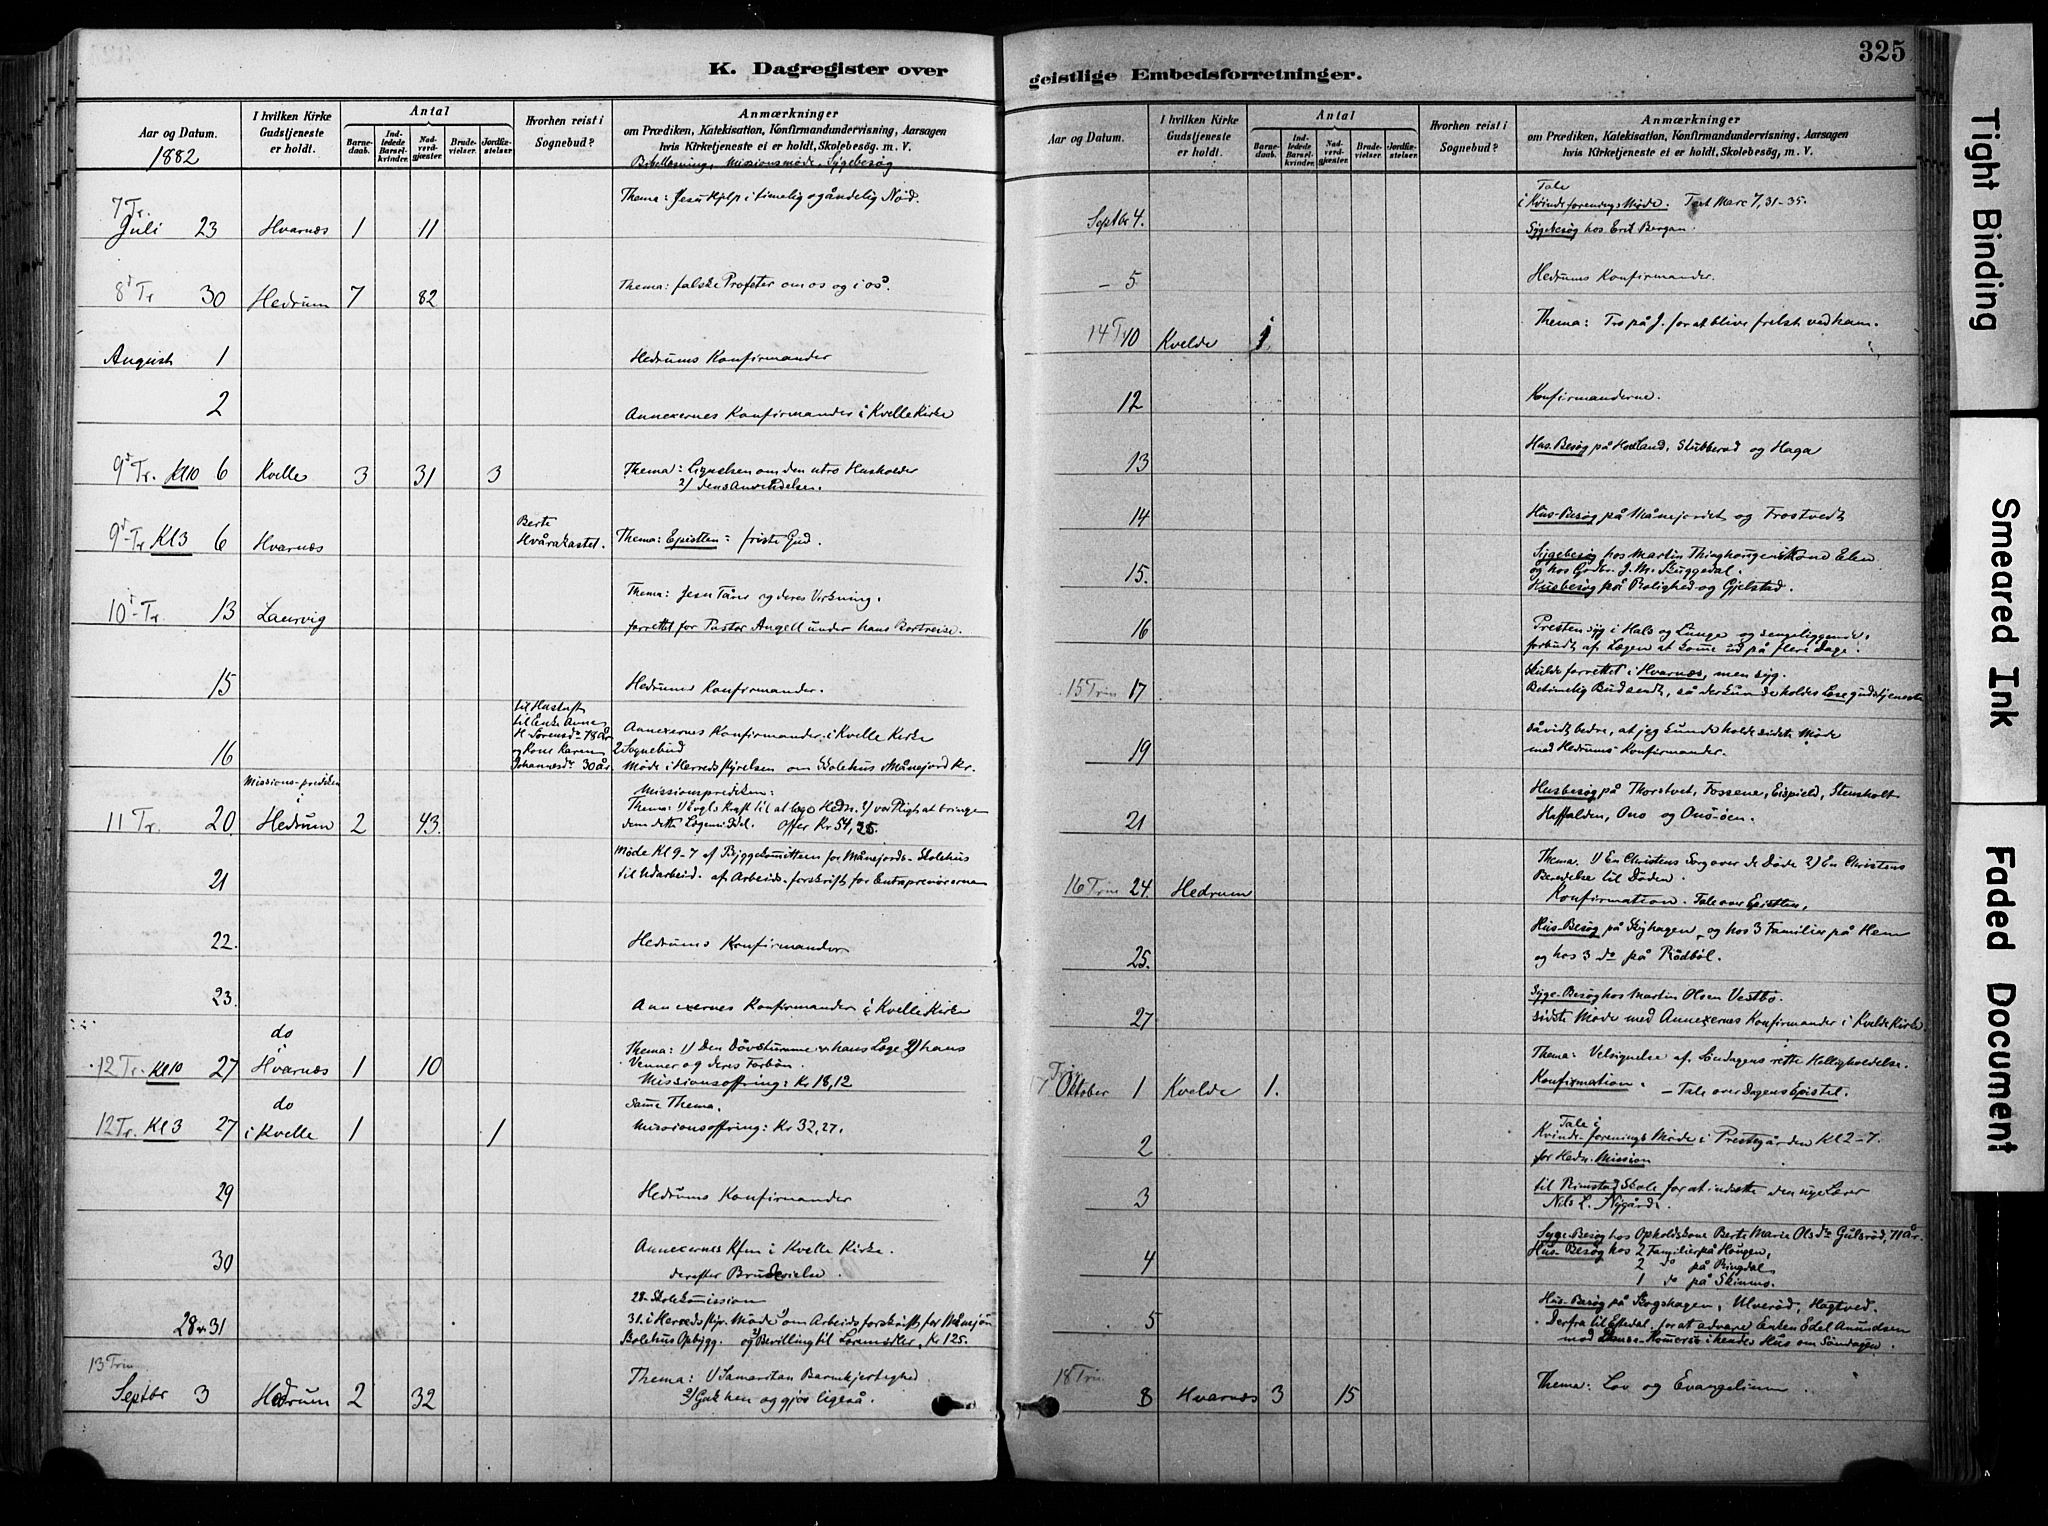 K. Dagregister over
Aar og Datum.
1882
I hvilken Kirke Gudstjeneste er holdt.
Antal
Barnedaab.
Indledede Barselkvinder.
Nadverdgjester
Brudevielser.
Jordfæstelser.
Hvorhen reist i Sognebud?
Anmærkninger
om Prædiken, Katekisation, Konfirmandundervisning, Aarsagen
hvis Kirketjeneste ei er holdt, Skolebesøg. m. V.
Bibellesning, Missionsmøde, Sygebesøg
7 Tr. Juli 23 Hvarnæs 1 11 Thema: Jesu Hjelp i timelig og åndelig Nød.
8d Tr 30 Hedrum 7 82 Thema: falske Profeter om os og i os.
August 1 Hedrums Konfirmander
2 Annexernes Konfirmander i Kvelle Kirke
9d Tr. Kl 10 6 Kvelle 3 31 3 Thema: Lignelsen om den utro Husholder
2) dens Anvendelse.
9d Tr Kl 3 6 Hvarnæs Berte Hvårakastet. Thema: Epistlen = friste Gud.
10d Tr 13 Laurvig Thema: Jesu Tårer og deres Virkning.
forrettet for Pastor Angell under hans Bortreise.
15 Hedrums Konfirmander.
16 til Enke Anne
H Sørensdr 78 år
og Kone Karen
Johannesdr 30 år.
Annexernes Konfirmander i Kvelle Kirke
2 Sognebud
Møde i Herredsstyrelsen om Skolehus Månejord Kr.
11 Tr. 20 Missions-prediken i Hedrum 2 43 Missionsprediken:
Thema: 1) Evgls Kraft til at læge Hedn. 2) vor Pligt at bringe
dem dette Lægemiddel. Offer Kr 54,35.
21 Møde Kl 9-7 af Byggekomitteen for Månejords-Skolehus
til Udarbeid. af Arbeids-forskrift for Entreprenørerne
22. Hedrums Konfirmander
23. Annexernes Konfirmander i Kvelle Kirke
12 Tr. Kl 10 27 do i Hvarnæs 1 10 Thema: 1) Den Døvstumme og hans Læge 2) hans
Venner og deres Forbøn.
Missionsoffring: Kr 18,12
12 Tr. Kl 3 27 do i Kvelle 1 1 Samme Thema.
Missionsoffring: Kr 32,27.
29 Hedrums Konfirmander
30 Annexernes Kfm i Kvelle Kirke.
derefter Brudevielse.
28 & 31 28-Skolekommission
31. i Herredsstyr. Møde 1) om Arbeidsforskrift for Månejord
Skolehus Opbygg. og 2) Bevilling til Kr 125.
13 Trin
Septbr 3 Hedrum 2 32 Thema: 1) Samaritan Barmhjertighed
2) Gak hen og gjør ligeså.
geistlige Embedsforretninger.
325
Aar og Datum.
I hvilken Kirke Gudstjeneste er holdt.
Antal
Barnedaab.
Indledede Barselkvinder.
Nadverdgjester
Brudevielser.
Jordfæstelser.
Hvorhen reist i Sognebud?
Anmærkninger
om Prædiken, Katekisation, Konfirmandundervisning, Aarsagen
hvis Kirketjeneste ei er holdt, Skolebesøg, m. V.
Septbr 4. Tale
i Kvindeforenings Møde. Text Marc 7,31-35.
Sygebesøg hos Erik Bergan.
- 5 Hedrums Konfirmander.
14 Tr 10 Kvelde 1 Thema: Tro på J. for at blive frelst ved ham.
12 Konfirmanderne.
13 Hus-Besøg på Hovland, Stubberød og Haga
14 Hus-Besøg på Månejordet og Trostvedt
15. Sygebesøg hos Martin Thinghougens Kone Elen
og hos Grdbr. J. M. Skuggedal.
Husbesøg på Rolighed og Gjelstad.
16 Presten syg i Hals og Lunge og sengeliggende.
forbudt af Lægen at komme ud på flere Dage.
15 Trin 17 skulde forrettet i Hvarnæs, men syg.
Betimelig Bud sendt, så der kunde holdes Læsegudstjeneste
19 såvidt bedre, at jeg kunde holde sidste Møde
med Hedrums Konfirmander.
21 Husbesøg på Thorstvet, Fossene, Eispield, Stensholt
Haffalden, Ono og Onö-öen.
16 Trin 24. Hedrum Thema. 1) En Christens Sorg over de Døde 2) En Christens
Beredelse til Døden.
Konfirmation. Tale over Epistlen.
25. Hus-Besøg på og hos 3 Familier på Hem
og hos 3 do på Rødbøl.
27 Syge-Besøg hos Martin Olsen Vestbø.
sidste Møde med Annexernes Konfirmander i Kvelde Kirke
17 Trin
Oktober 1 Kvelde 1. Thema: Velsignelse af Søndagens rette Helligholdelse.
Konfirmation. - Tale over Dagens Epistel.
2 Tale i
Kvinde-forenings Møde i Prestegården Kl 2-7.
for Hedn. Mission
3 til Rimstad Skole for at indsette den nye Lærer
Nils L. Nygård.
4 Syge-Besøg hos Opholdskone Berte Marie Olsdr Gulsrød, 71 år.
Hus-Besøg hos 2 Familier på Hougen,
2 do på Ringdal
1 do på Skinmo.
5 Hus-Besøg på Skogshagen, Ulverød, Hogtved.
Derfra til Eftedal, for at advare Enken Edel Amundsen
mod i hendes Hus om Søndagen.
18 Trin
8 Hvarnæs 3 15 Thema: Lov og Evangelium
Tight Binding
Smeared Ink
Faded Document